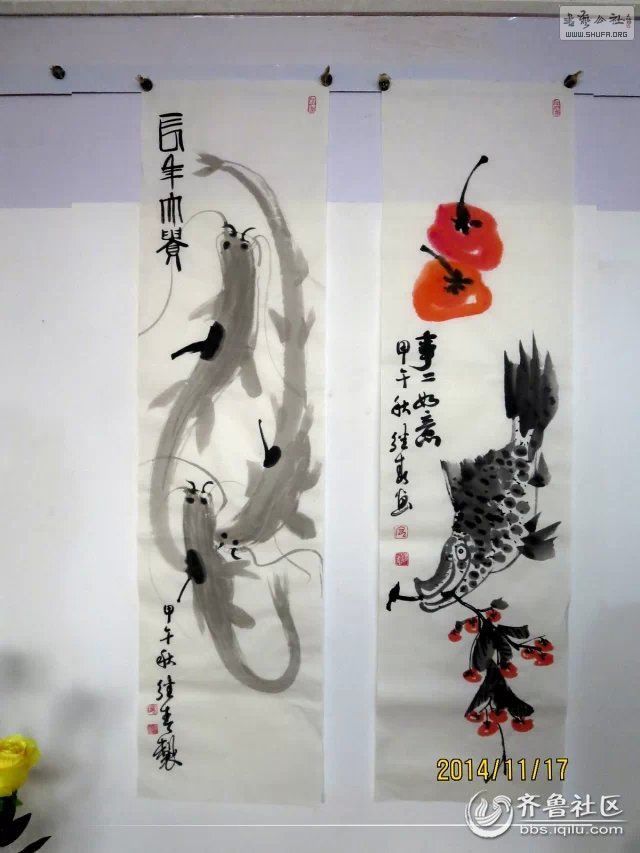 书法公社
WWW.SHUFA.ORG
長年大貴
甲午秋
事二如意
甲午秋
2014/11/17
齐鲁社区
bbs.iqilu.com